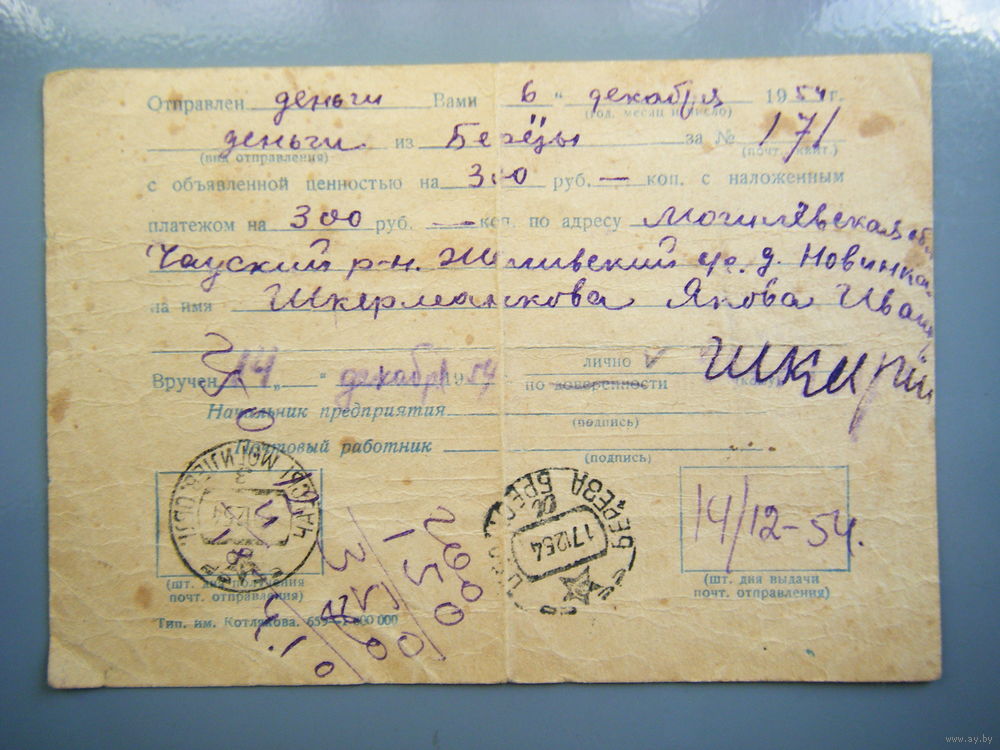 Отправлен деньги Вами 6 " декабря 1954 г.
(год, месяц и число)
деньги из Берёзы за № 171
(вид отправления) (почт. квит.)
с объявленной ценностью на 300 руб. — коп. с наложенным
платежом на 300 руб. — коп. по адресу Могилёвская об
Чауский р-н. д. Новинка
на имя Шкерманкова Якова Иван
лично v
Вручен 14 " " декабря 1954 по доверенности
Начальник предприятия
(подпись)
Почтовый работник
(подпись)
БЕРЕЗА БРЕСТ
171254
14/12-54.
(шт. дня получения
почт. отправления)
(шт. дня выдачи
почт. отправления)
Тип. им. Котлякова. 659—1 000 000
2900
150
www.ay.by